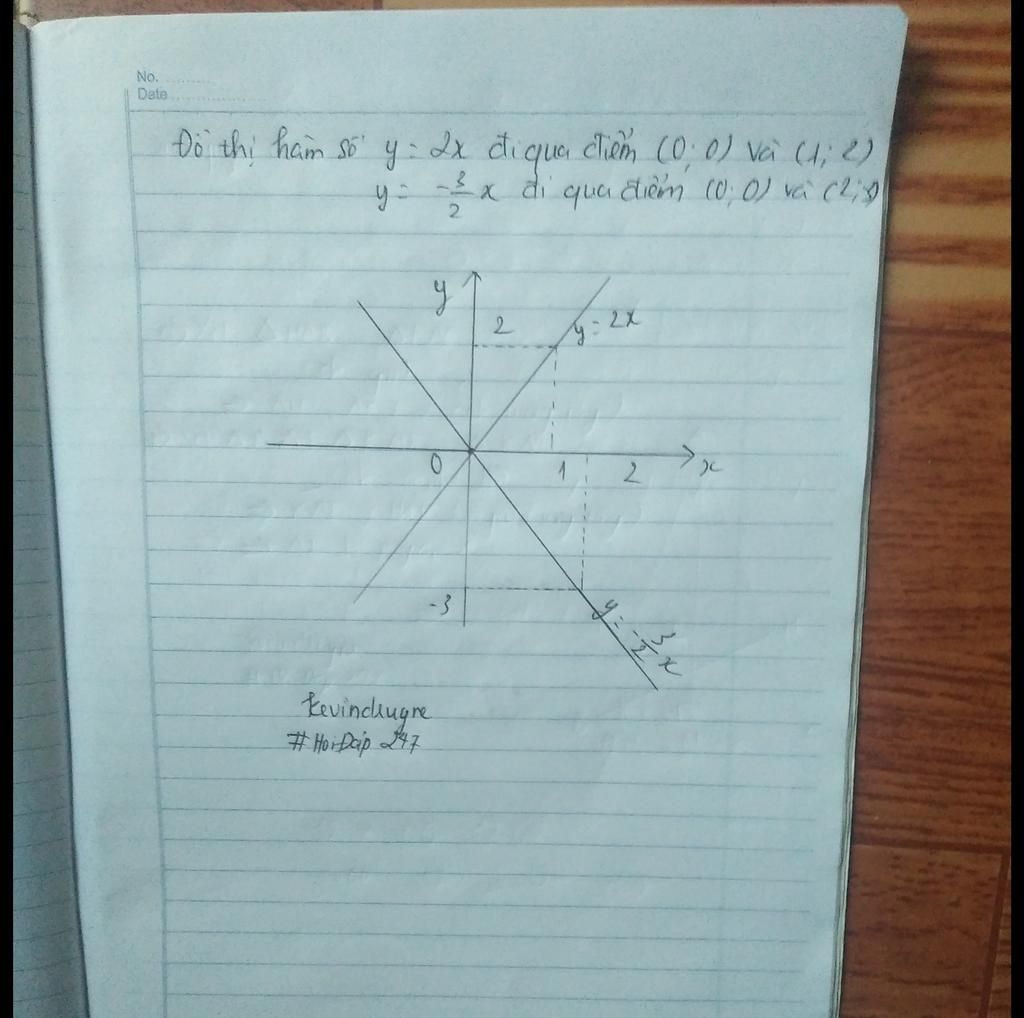 No.
Date
Đồ thị hàm số y = 2x đi qua điểm (0; 0) và (1; 2)
y = -3/2 x đi qua điểm (0; 0) và (2;
y
2
y = 2x
0
1
2
x
-3
y = -3/2 x
#HoiDap 247